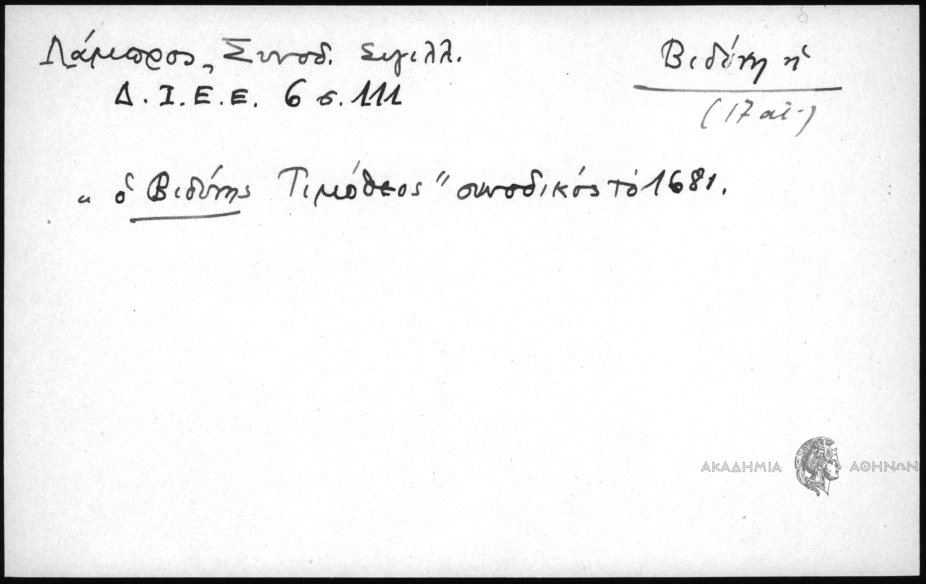 Λάμπρος, Συνοδ. Σιγιλλ.
Δ. Ι. Ε. Ε. 6 σ. 111
Βιδύνη ἡ
(17 αἰ.)
"ὁ Βιδύνης Τιμόθεος" συνοδικός τό 1681.
ΑΚΑΔΗΜΙΑ ΑΘΗΝΩΝ